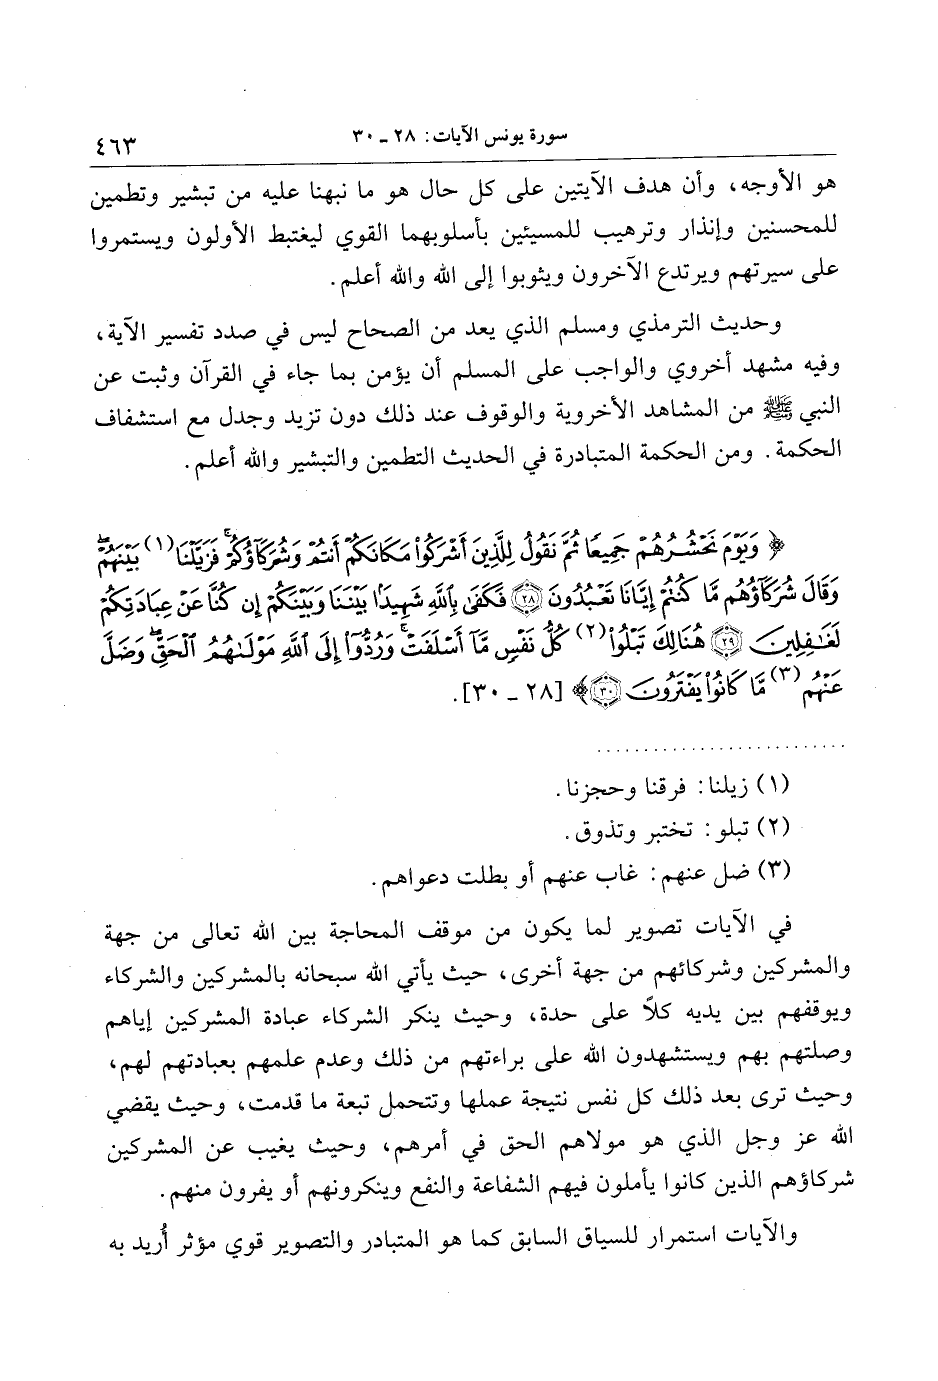 سورة يونس الآيات: ٢٨ ـ ٣٠
٤٦٣
هو الأوجه، وأن هدف الآيتين على كل حال هو ما نبهنا عليه من تبشير وتطمين
للمحسنين وإنذار وترهيب للمسيئين بأسلوبهما القوي ليغتبط الأولون ويستمروا
على سيرتهم ويرتدع الآخرون ويثوبوا إلى الله والله أعلم.
وحديث الترمذي ومسلم الذي يعد من الصحاح ليس في صدد تفسير الآية،
وفيه مشهد أخروي والواجب على المسلم أن يؤمن بما جاء في القرآن وثبت عن
النبي ﷺ من المشاهد الأخروية والوقوف عند ذلك دون تزيد وجدل مع استشفاف
الحكمة. ومن الحكمة المتبادرة في الحديث التطمين والتبشير والله أعلم.
﴿ وَيَوْمَ نَحْشُرُهُمْ جَمِيعًا ثُمَّ نَقُولُ لِلَّذِينَ أَشْرَكُواْ مَكَانَكُمْ أَنتُمْ وَشُرَكَآؤُكُمْۚ فَزَيَّلْنَا (١) بَيْنَهُمْۖ
وَقَالَ شُرَكَآؤُهُم مَّا كُنتُمْ إِيَّانَا تَعْبُدُونَ ٢٨ فَكَفَىٰ بِٱللَّهِ شَهِيدًۢا بَيْنَنَا وَبَيْنَكُمْ إِن كُنَّا عَنْ عِبَادَتِكُمْ
لَغَٰفِلِينَ ٢٩ هُنَالِكَ تَبْلُواْ (٢) كُلُّ نَفْسٍ مَّآ أَسْلَفَتْۚ وَرُدُّوٓاْ إِلَى ٱللَّهِ مَوْلَىٰهُمُ ٱلْحَقِّۖ وَضَلَّ
عَنْهُم (٣) مَّا كَانُواْ يَفْتَرُونَ ٣٠ ﴾ [٢٨ ـ ٣٠].
(١) زيلنا: فرقنا وحجزنا.
(٢) تبلو: تختبر وتذوق.
(٣) ضل عنهم: غاب عنهم أو بطلت دعواهم.
في الآيات تصوير لما يكون من موقف المحاجة بين الله تعالى من جهة
والمشركين وشركائهم من جهة أخرى، حيث يأتي الله سبحانه بالمشركين والشركاء
ويوقفهم بين يديه كلاً على حدة، وحيث ينكر الشركاء عبادة المشركين إياهم
وصلتهم بهم ويستشهدون الله على براءتهم من ذلك وعدم علمهم بعبادتهم لهم،
وحيث ترى بعد ذلك كل نفس نتيجة عملها وتتحمل تبعة ما قدمت، وحيث يقضي
الله عز وجل الذي هو مولاهم الحق في أمرهم، وحيث يغيب عن المشركين
شركاؤهم الذين كانوا يأملون فيهم الشفاعة والنفع وينكرونهم أو يفرون منهم.
والآيات استمرار للسياق السابق كما هو المتبادر والتصوير قوي مؤثر أُريد به